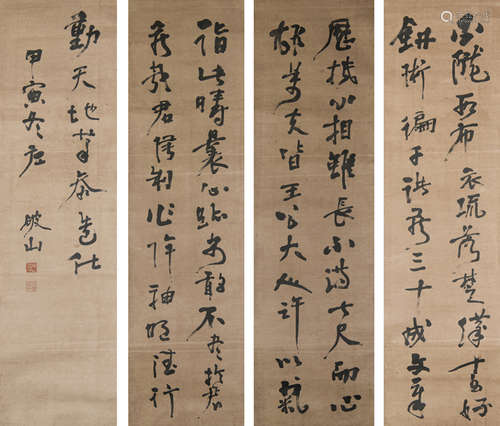 白隴西布衣流落楚漢十五好
劍術徧干諸侯三十成文章
歷抵卿相雖長不滿七尺而心
雄萬夫皆王公大人許以氣
誼此疇曩心跡安敢不盡於君
侯哉君侯制作侔神明德行
動天地筆參造化
甲寅冬 破山